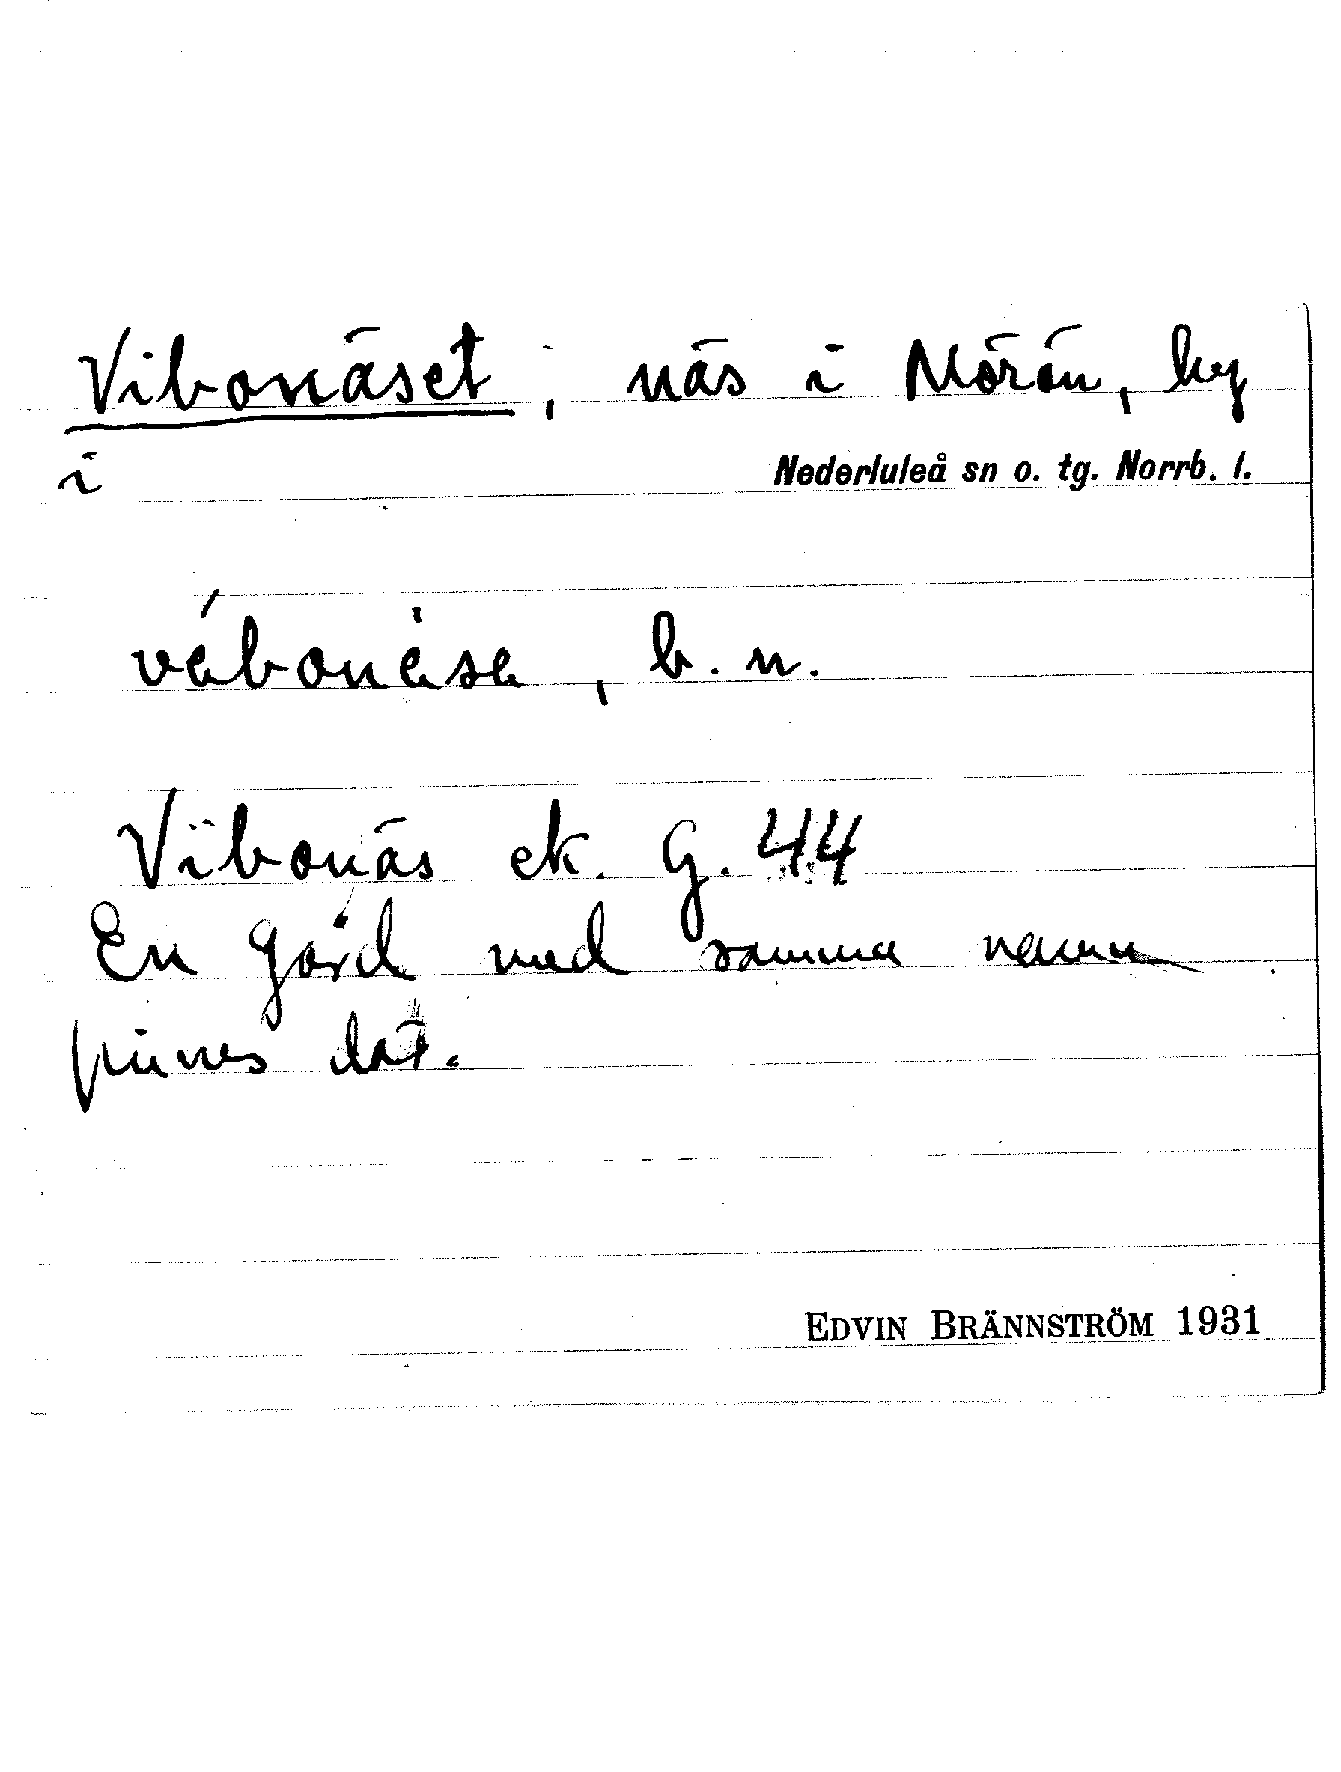 Vibonäset, näs i Mörön, by
i Nederluleå sn o. tg. Norrb. l.
b. n.
Vibonäs ek. G. 44
En gård med samma namn
finnes där.
EDVIN BRÄNNSTRÖM 1931